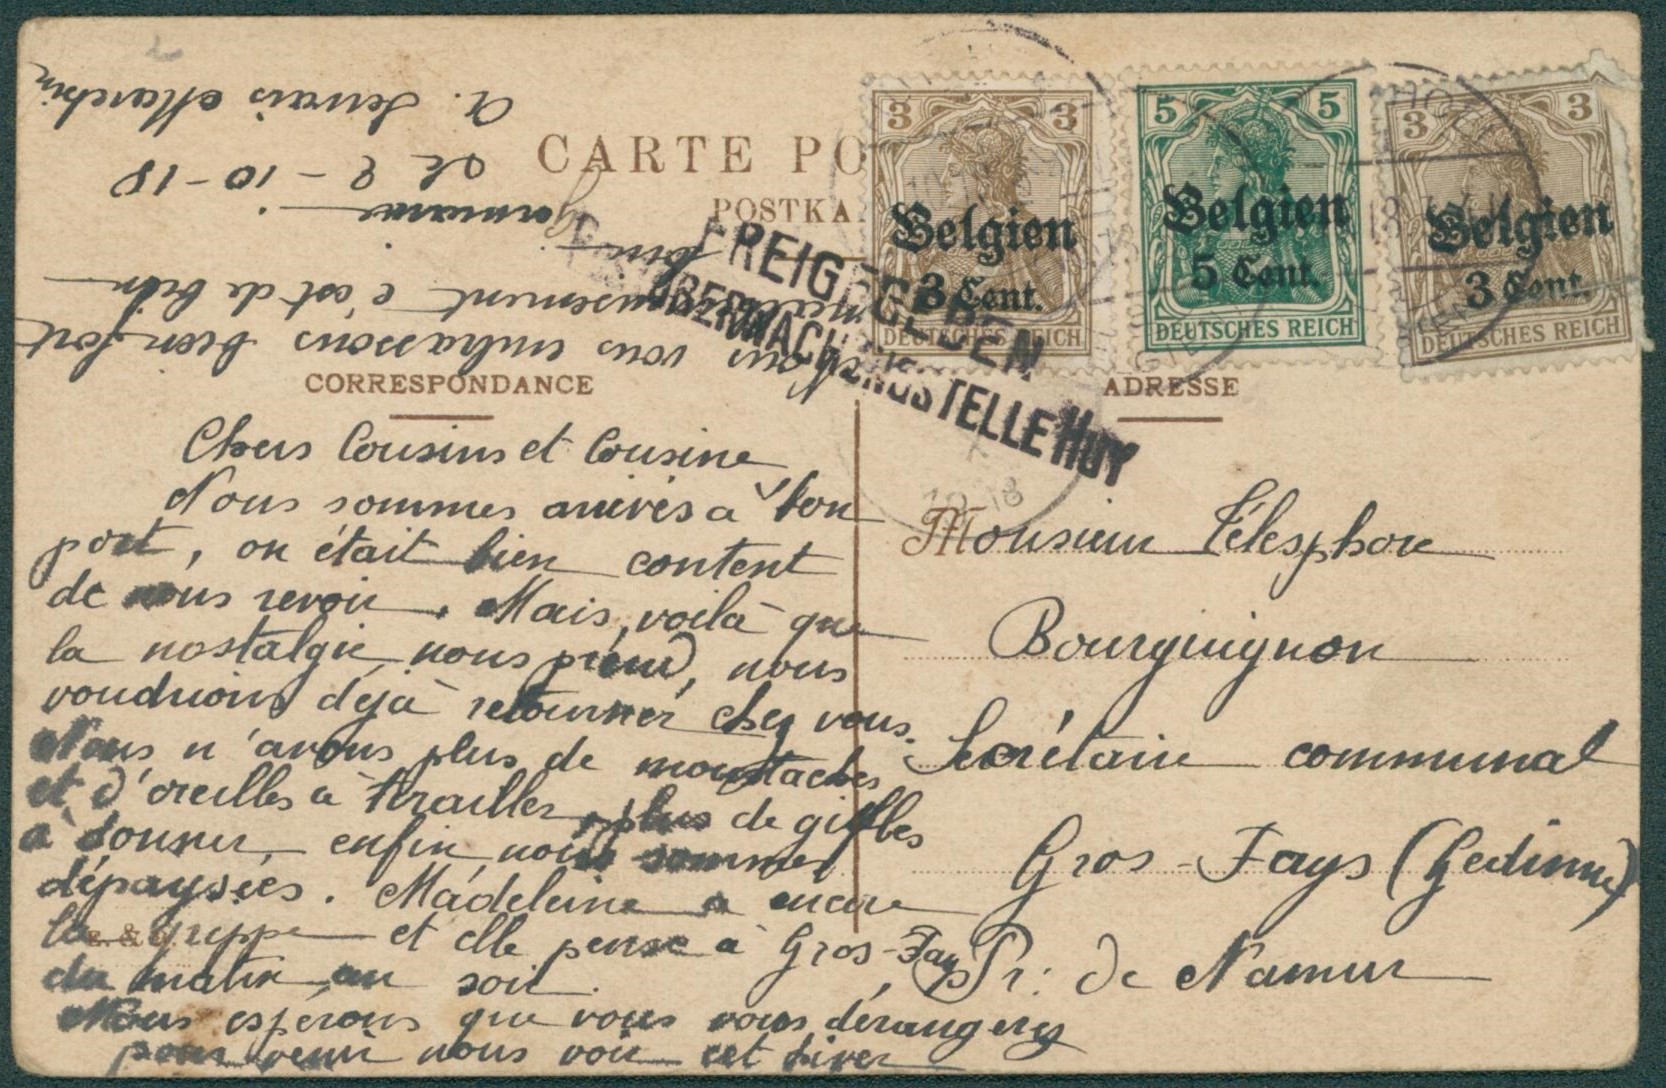 CARTE PO
POSTKA
CORRESPONDANCE
ADRESSE
3 3
Belgien
3 Cent.
DEUTSCHES REICH
5 5
Belgien
5 Cent.
DEUTSCHES REICH
3 3
Belgien
3 Cent.
DEUTSCHES REICH
FREIGEGEBEN
ÜBERWACHUNGSSTELLE HUY
Chers Cousins et Cousine
Nous sommes arrivés à bon
port, on était bien content
de nous revoir. Mais, voilà que
la nostalgie nous prend, nous
voudrions déjà retourner chez vous.
Nous n'avons plus de moustaches
et d'oreilles à tirailler, plus de giffles
à donner, enfin nous sommes
dépaysées. Madeleine a encore
la grippe et elle pense à Gros-Fays
du matin au soir.
Nous espérons que vous vous dérangerez
pour venir nous voir cet hiver
vous embrassons bien fort
malheureusement c'est de bien
loin
Germaine
Le 2-10-18
A. Servais Marchin
Monsieur Télesphore
Bourguignon
Secrétaire communal
Gros-Fays (Gedinne)
Pr: de Namur